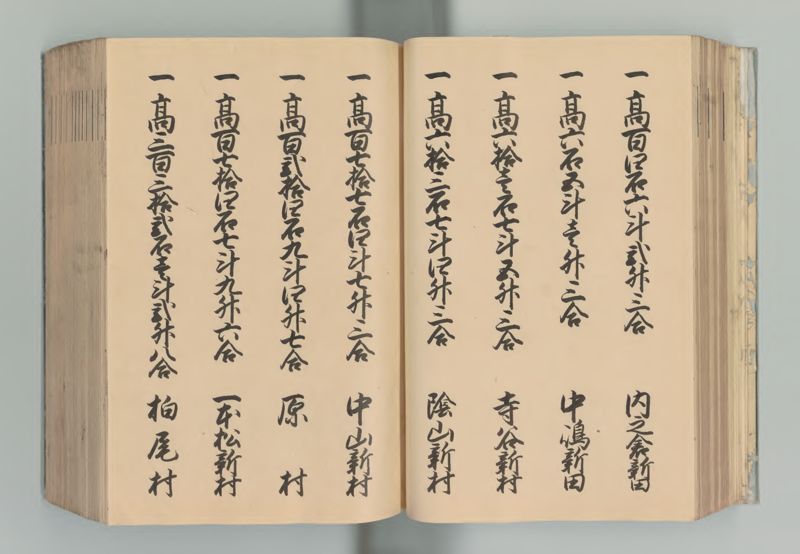 一高百四石六斗弐升三合 内之倉新田
一高六石五斗壱升三合 中嶋新田
一高六拾壱石七斗五升三合 寺谷新村
一高六拾三石七斗四升三合 陰山新村
一高百七拾七石四斗七升三合 中山新村
一高百弐拾四石九斗四升七合 原村
一高百七拾四石七斗九升六合 一本松新村
一高三百三拾弐石壱斗弐升八合 柏尾村